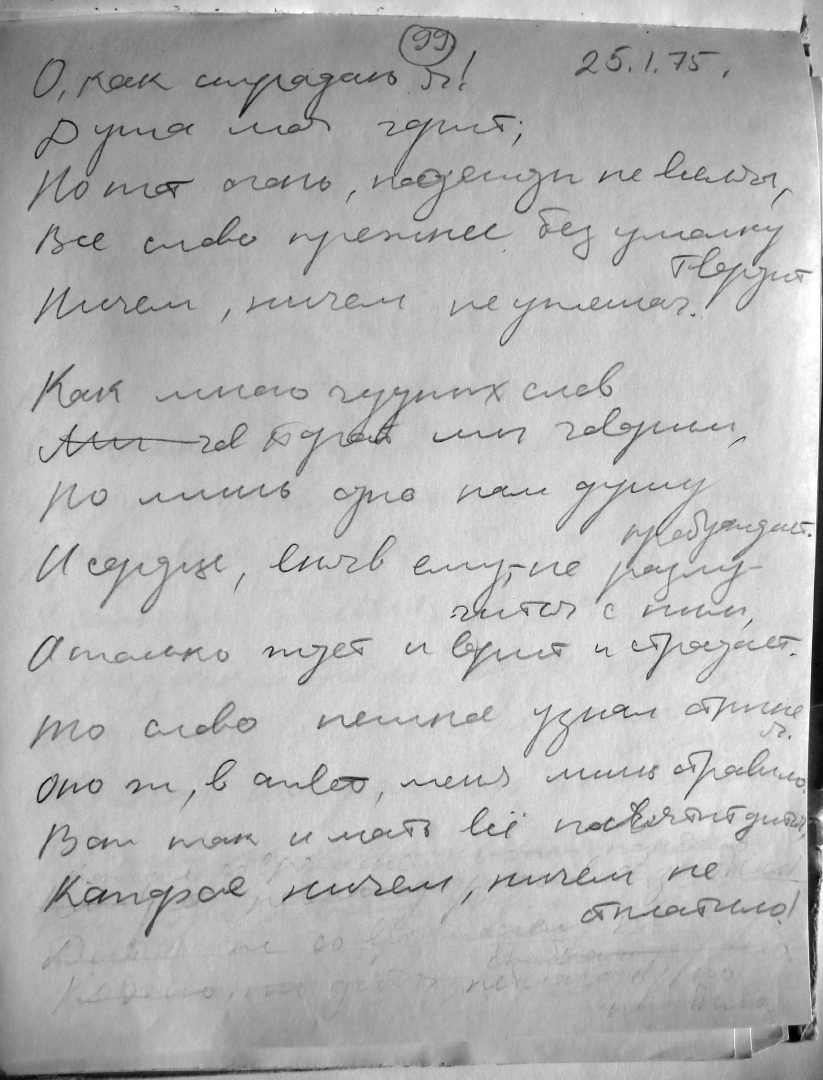 99
О, как страдаю я! 25.1.75.
Душа моя горит;
Но тот огонь, надежды не внемля,
Все слово прежнее без умолку
твердит
Ничем, ничем не утешая.
Как много чудных слов
Порой мы говорим,
Но лишь одно нам душу
пробуждает.
И сердце, вняв ему, не разлу-
чится с ним,
А только ждет и верит и страдает.
То слово нежное узнал отныне
я.
Оно ж, в ответ, меня лишь отравило.
Вот так и мать всё посвятит дитя,
Которое ничем, ничем не
отплатило!